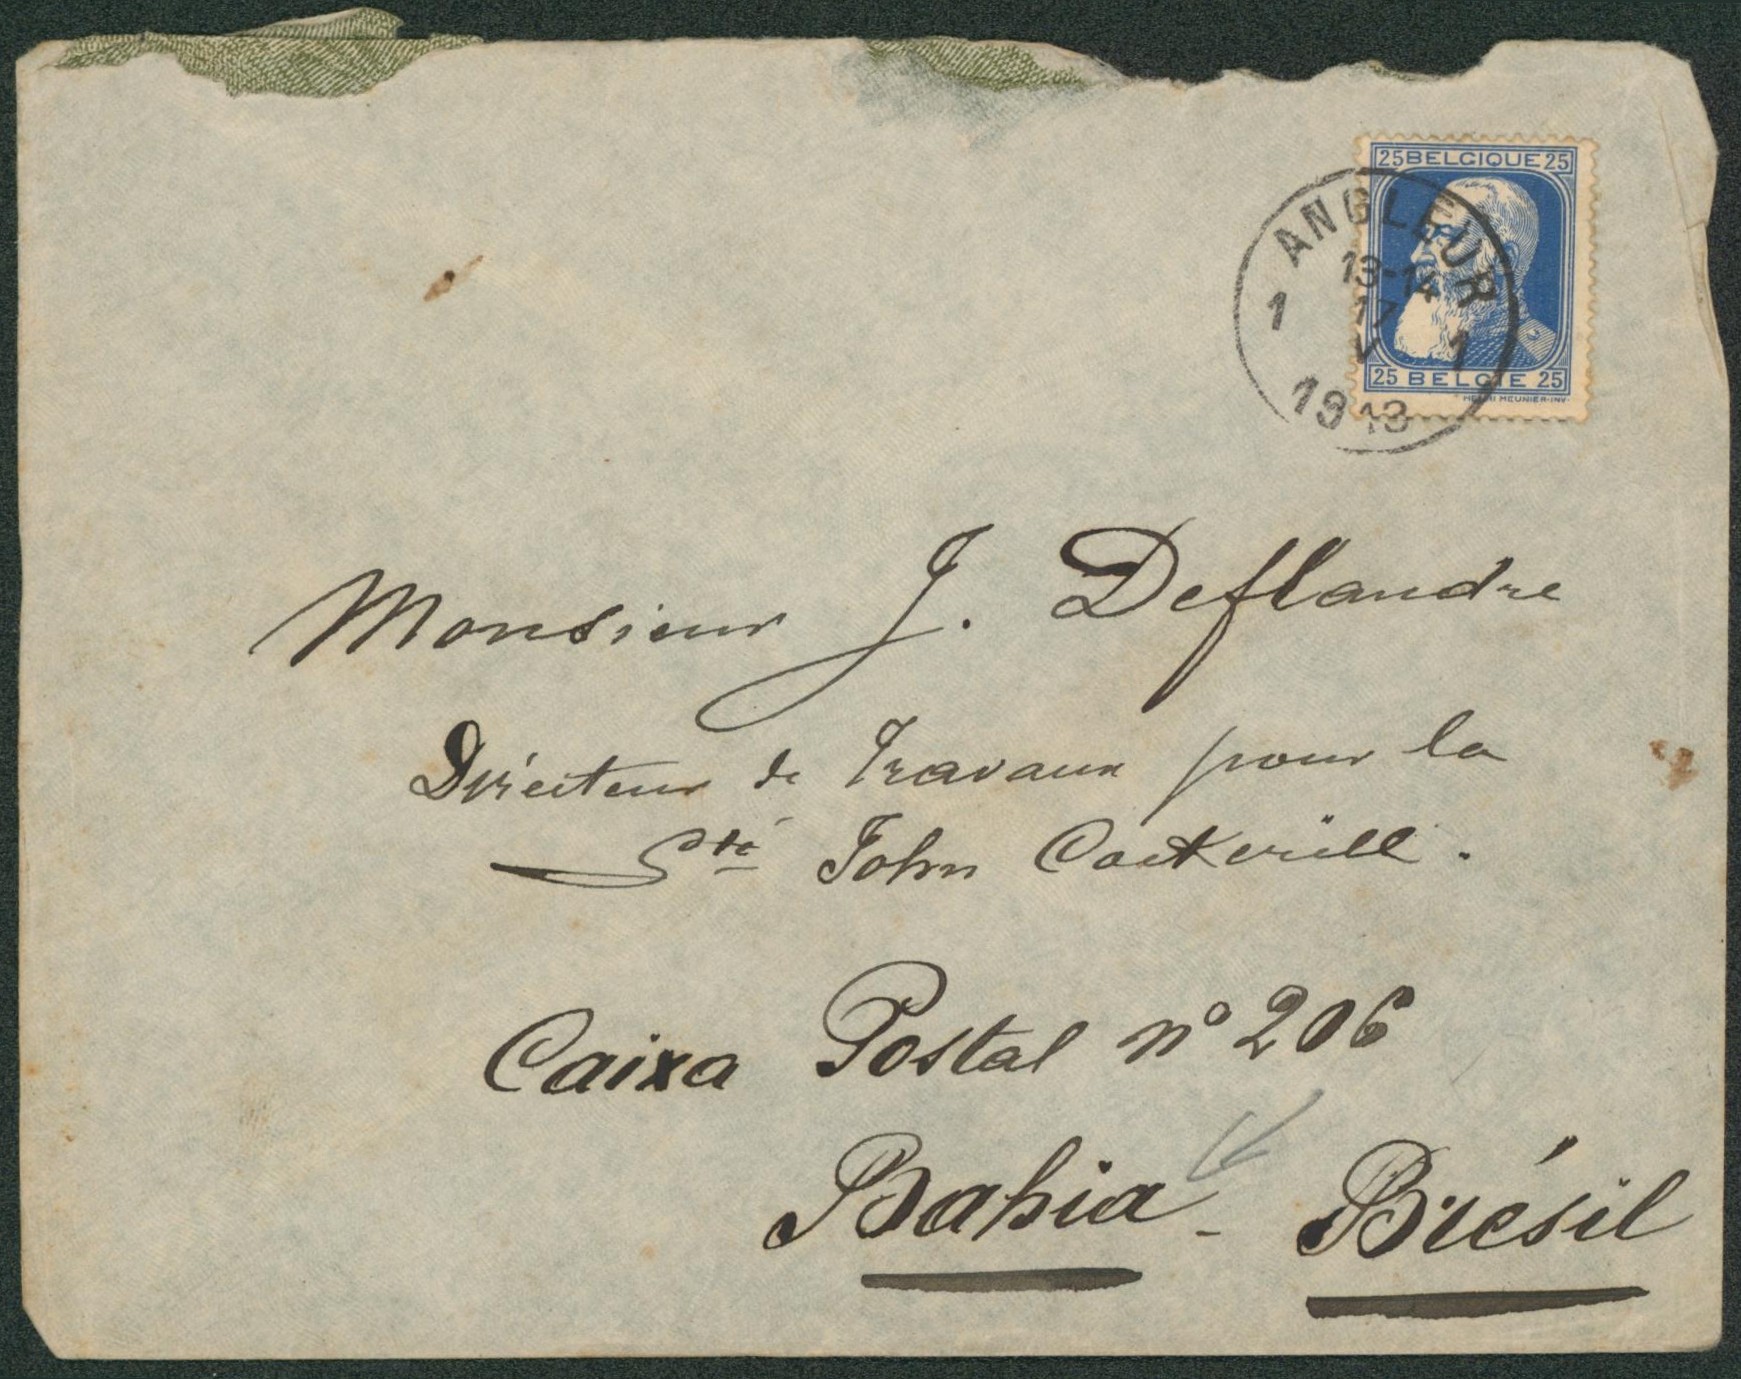 25 BELGIQUE 25
ANGLEUR
13-14
1 17 1
V
1913
25 BELGIË 25
HENRI MEUNIER·INV·
Monsieur J. Deflandre
Directeur de Travaux pour la
Sté John Cockerill.
Caixa Postal n° 206
Bahia - Brésil